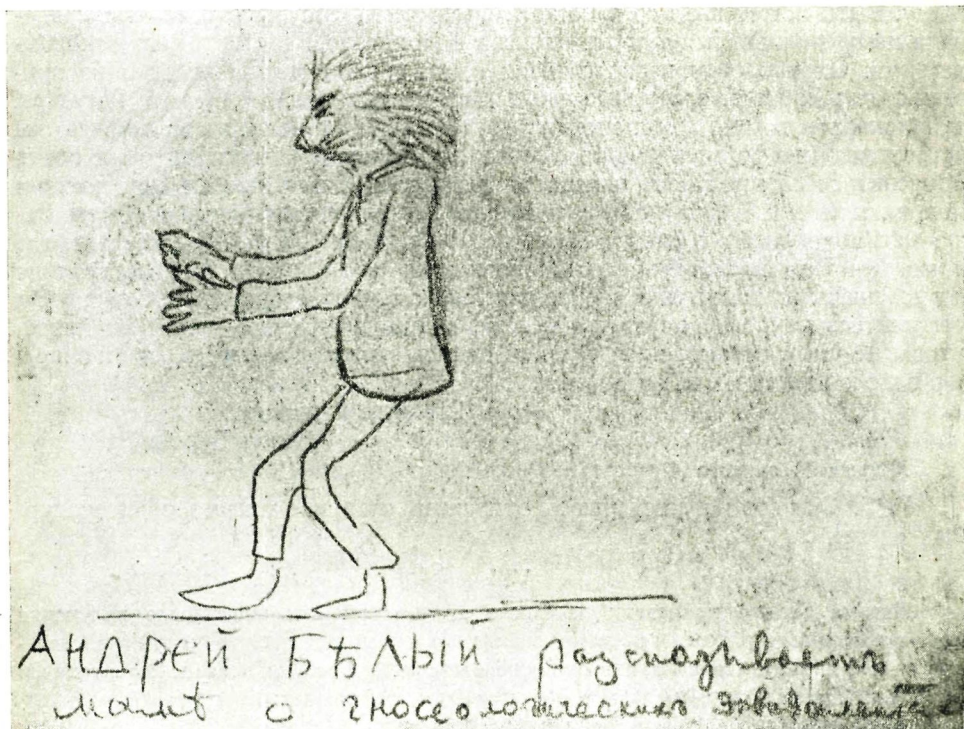 АНДРЕЙ БѢЛЫЙ разсказываетъ
мамѣ о гносеологическихъ эквивалентахъ